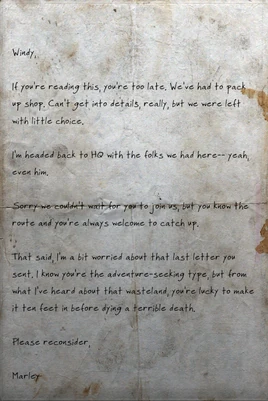 Windy,
If you're reading this, you're too late. We've had to pack
up shop. Can't get into details, really, but we were left
with little choice.
I'm headed back to HQ with the folks we had here-- yeah,
even him.
Sorry we couldn't wait for you to join us, but you know the
route and you're always welcome to catch up.
That said, I'm a bit worried about that last letter you
sent. I know you're the adventure-seeking type, but from
what I've heard about that wasteland, you're lucky to make
it ten feet in before dying a terrible death.
Please reconsider,
Marley